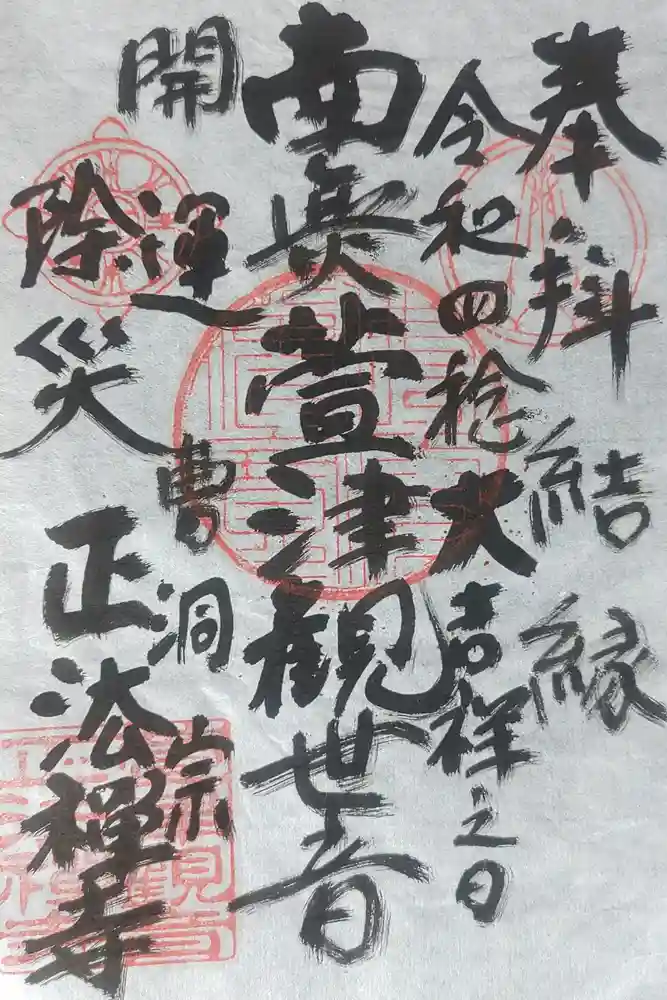 奉拝 結縁
令和四稔大吉祥之日
南無萱津観世音
開運 曹洞宗
除災 正法禪寺